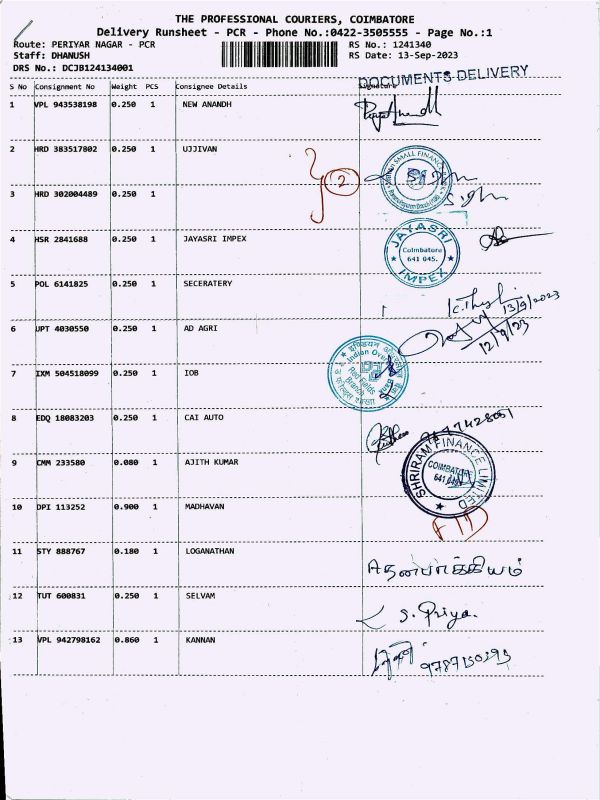 THE PROFESSIONAL COURIERS, COIMBATORE
Delivery Runsheet - PCR - Phone No.:0422-3505555 - Page No.:1
Route: PERIYAR NAGAR - PCR RS No.: 1241340
Staff: DHANUSH RS Date: 13-Sep-2023
DRS No.: DCJB124134001
DOCUMENTS DELIVERY
S No Consignment No Weight PCS Consignee Details Signature
1 VPL 943538198 0.250 1 NEW ANANDH
2 HRD 383517802 0.250 1 UJJIVAN
2
3 HRD 302004489 0.250 1
4 HSR 2841688 0.250 1 JAYASRI IMPEX
JAYASRI
Coimbatore
641 045.
IMPEX
5 POL 6141825 0.250 1 SECERATERY
13/9/2023
6 UPT 4030550 0.250 1 AD AGRI
12/9/23
7 IXM 504518099 0.250 1 IOB
Red Fields
Branch
8 EDQ 18083203 0.250 1 CAI AUTO
9 CMM 233580 0.080 1 AJITH KUMAR
SHRIRAM FINANCE LIMITED
COIMBATORE
10 DPI 113252 0.900 1 MADHAVAN
11 STY 888767 0.180 1 LOGANATHAN
12 TUT 600831 0.250 1 SELVAM
S. Priya.
13 VPL 942798162 0.860 1 KANNAN